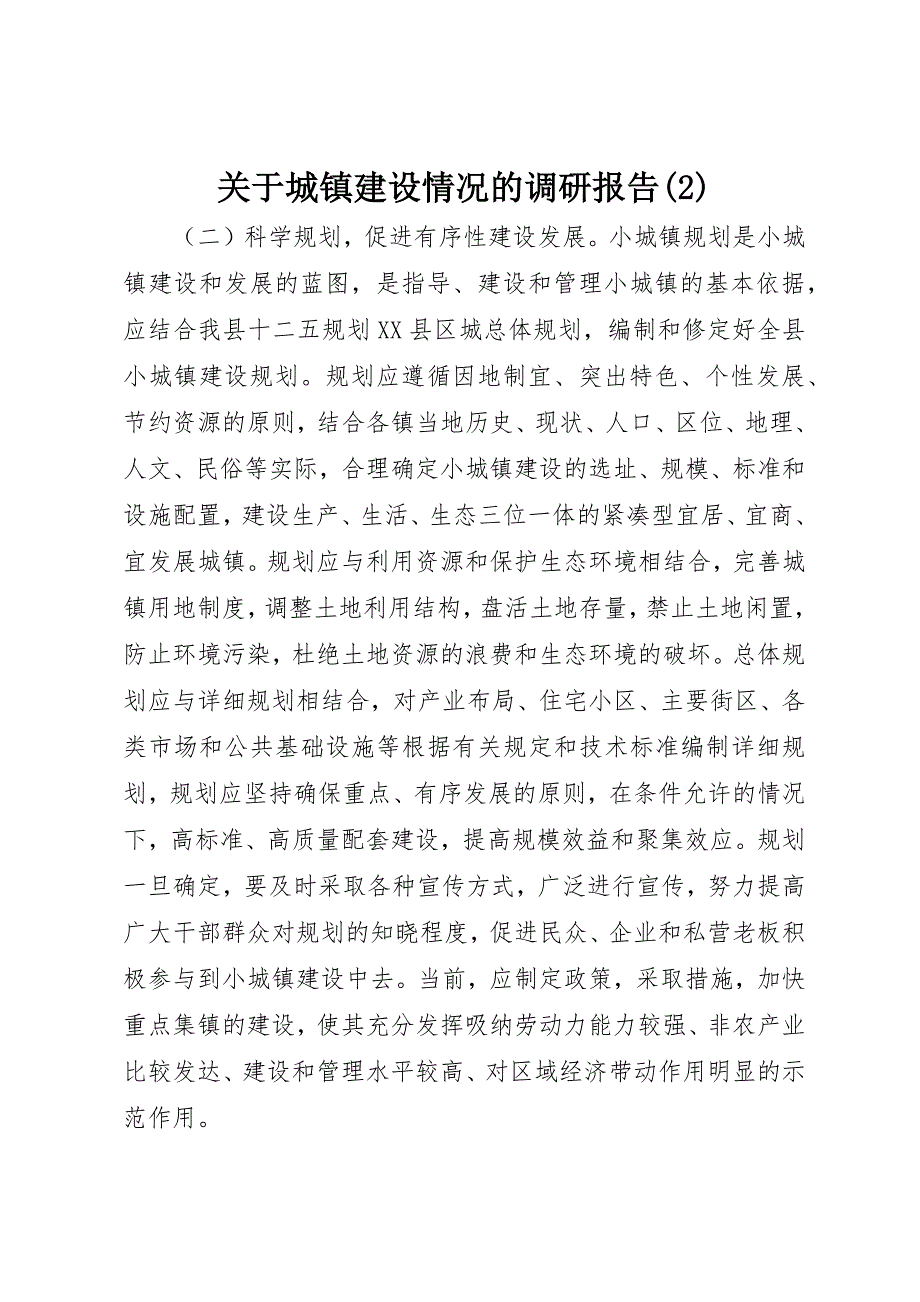 关于城镇建设情况的调研报告(2)
（二）科学规划，促进有序性建设发展。小城镇规划是小城
镇建设和发展的蓝图，是指导、建设和管理小城镇的基本依据，
应结合我县十二五规划 XX 县区城总体规划，编制和修定好全县
小城镇建设规划。规划应遵循因地制宜、突出特色、个性发展、
节约资源的原则，结合各镇当地历史、现状、人口、区位、地理、
人文、民俗等实际，合理确定小城镇建设的选址、规模、标准和
设施配置，建设生产、生活、生态三位一体的紧凑型宜居、宜商、
宜发展城镇。规划应与利用资源和保护生态环境相结合，完善城
镇用地制度，调整土地利用结构，盘活土地存量，禁止土地闲置，
防止环境污染，杜绝土地资源的浪费和生态环境的破坏。总体规
划应与详细规划相结合，对产业布局、住宅小区、主要街区、各
类市场和公共基础设施等根据有关规定和技术标准编制详细规
划，规划应坚持确保重点、有序发展的原则，在条件允许的情况
下，高标准、高质量配套建设，提高规模效益和聚集效应。规划
一旦确定，要及时采取各种宣传方式，广泛进行宣传，努力提高
广大干部群众对规划的知晓程度，促进民众、企业和私营老板积
极参与到小城镇建设中去。当前，应制定政策，采取措施，加快
重点集镇的建设，使其充分发挥吸纳劳动力能力较强、非农产业
比较发达、建设和管理水平较高、对区域经济带动作用明显的示
范作用。